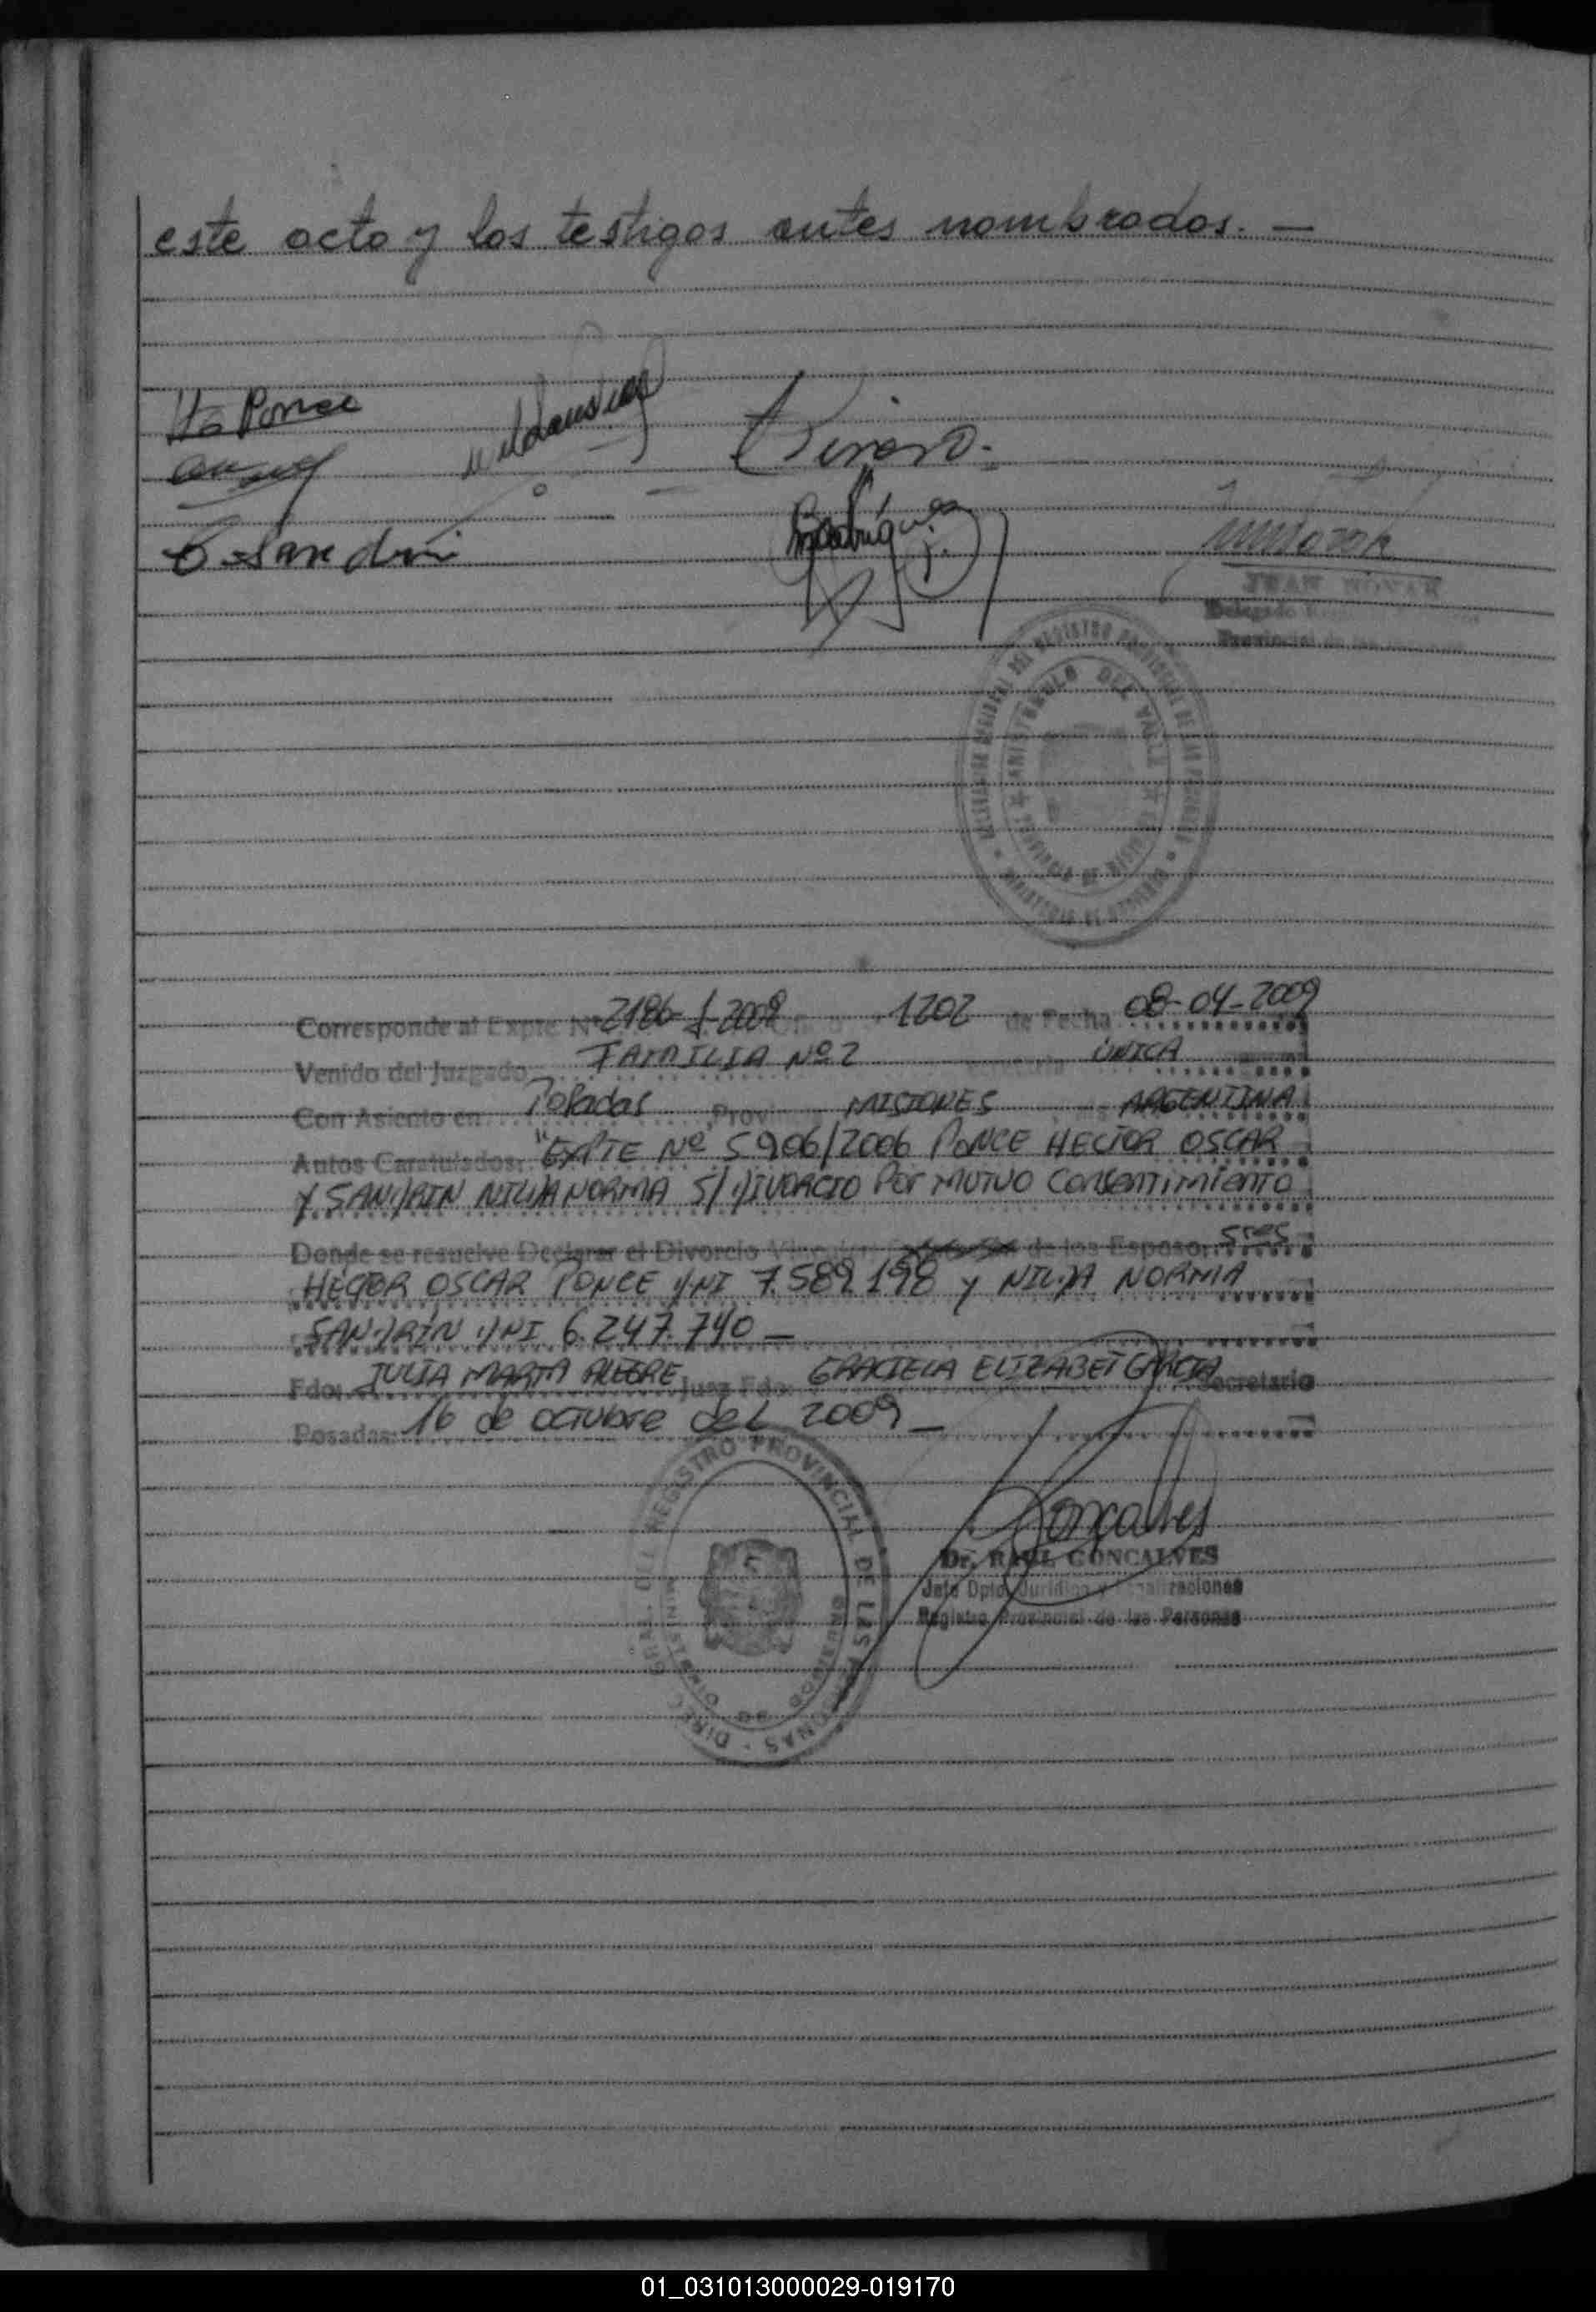 este acto y los testigos antes nombrados. —
Ponce
Rodríguez
JUAN
Delegado
Provincial de las
ARISTOBULO DEL VALLE
PROVINCIA DE
Corresponde al Expte Nº 2186-f-2008 1202 de Fecha 08-04-2009
Venido del Juzgado FAMILIA Nº 2 UNICA
Con Asiento en Posadas Prov MISIONES ARGENTINA
Autos Caratulados: "EXPTE Nº 5906/2006 PONCE HECTOR OSCAR
Y SANDRIN NILDA NORMA S/ DIVORCIO POR MUTUO Consentimiento
Donde se resuelve Declarar el Divorcio de los Esposos sres
HECTOR OSCAR PONCE DNI 7.589.198 y NILDA NORMA
SANDRIN DNI 6.247.740 —
Fdo: JULIA MARTA ALEGRE Juez Fdo: GRACIELA ELIZABET GARCIA Secretario
Posadas: 16 de octubre del 2009 —
REGISTRO PROVINCIAL DE LAS PERSONAS
Goncalves
Dr. RAUL GONCALVES
Jefe Dpto. Jurídico y
Registro Provincial de las Personas
01_031013000029-019170